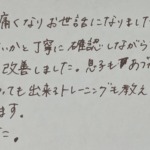 痛くなりお世話になりました
いかと丁寧に確認しながら
改善しました。息子も
ても出来るトレーニングも教え
ます。
た。